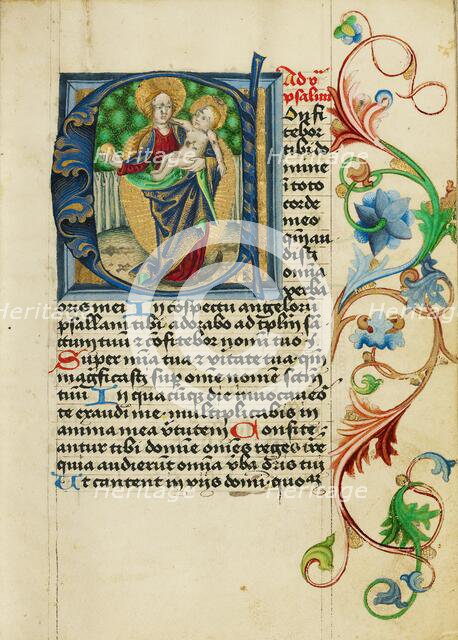 Ad ij
psalm
Onfi
tebor
tibi do
mine
in toto
corde
meo
qm au
disti
omia
verba
oris mei In cospectu angelor
psallam tibi adorabo ad tplm sa
ctum tuu cofitebor noi tuo
Super mia tua z vitate tua qm
magficasti sup ome nomen sctm
tuu In quacuq die invocavero
te exaudi me multiplicabis in
anima mea vtutem Confite
antur tibi domie omes reges tre
quia audierut omia vba oris tui
Et cantent in viis domi quoar